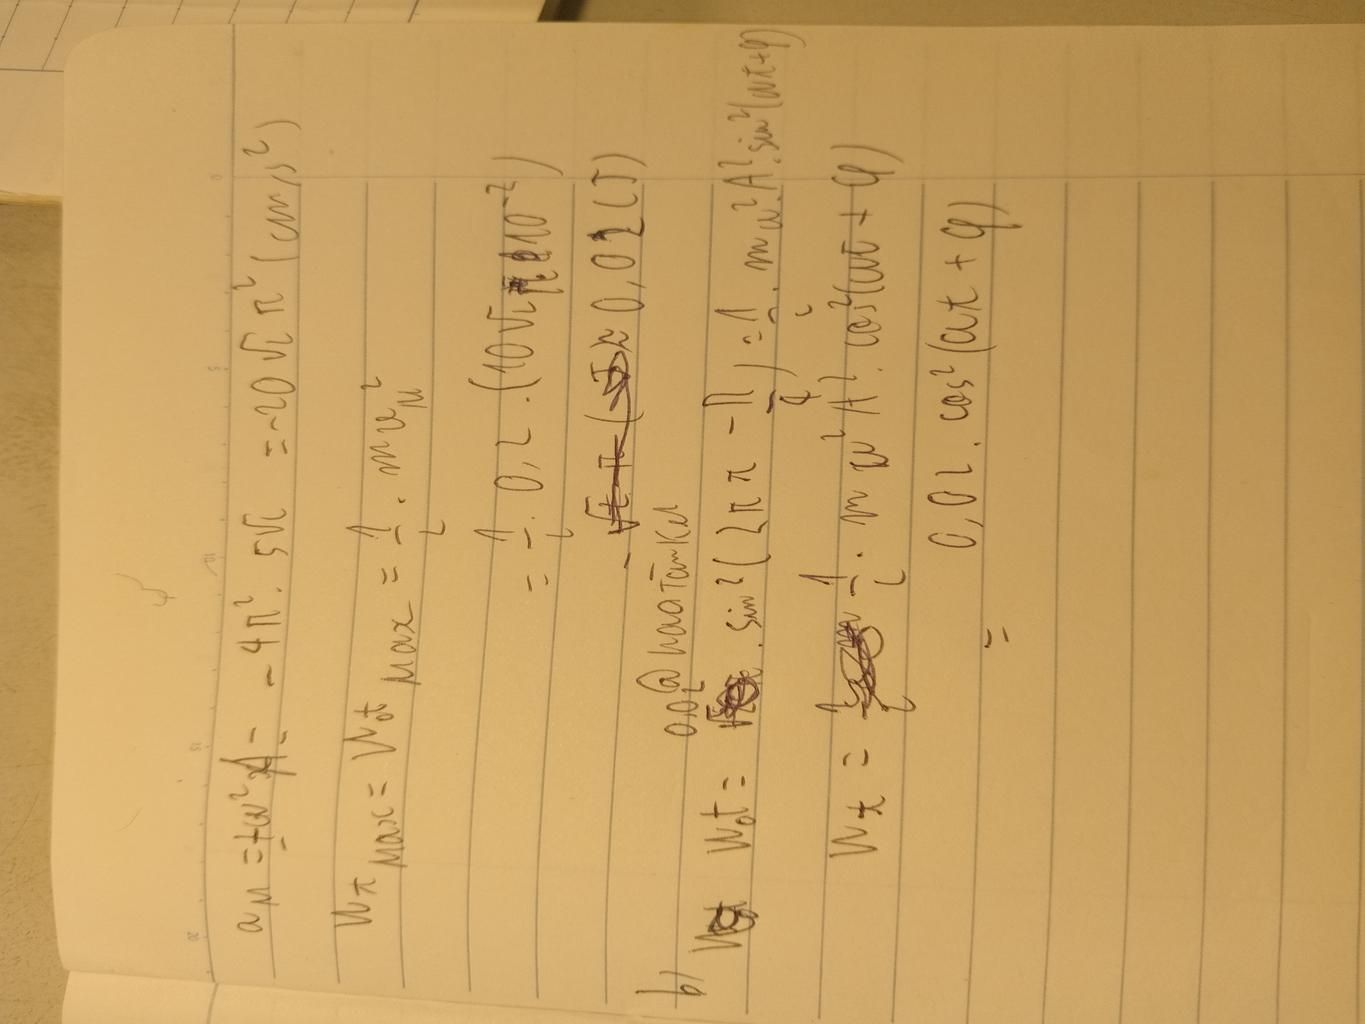 a_M = +ω²A = - 4π². 5√2 = -20√2 π² (cm/s²)
W_t max = W_đt max = 1/2 . mv²_M
= 1/2 . 0,2 . (10√2 10⁻²)
≈ 0,02 (J)
b) W_đt = 0,02 . sin² (2πt - π/4) = 1/2 . mω². A². sin²(ωt+φ)
W_t = 1/2 . mω²A². cos²(ωt + φ)
= 0,02 . cos² (ωt + φ)